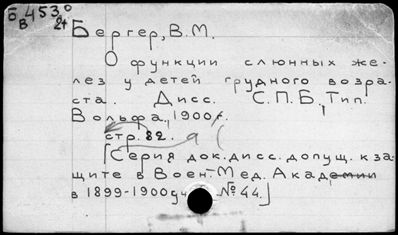 õ 453
в 24
Бергер, В.М.
О функции слюнных же-
лез у детей грудного возра-
ста. Дисс. С.П.Б., Тип.
Вольфа, 1900 г.
стр. 82.
[Серия док. дисс. допущ. к за-
щите в Воен. Мед. Академии
в 1899-1900 уч № 44.]